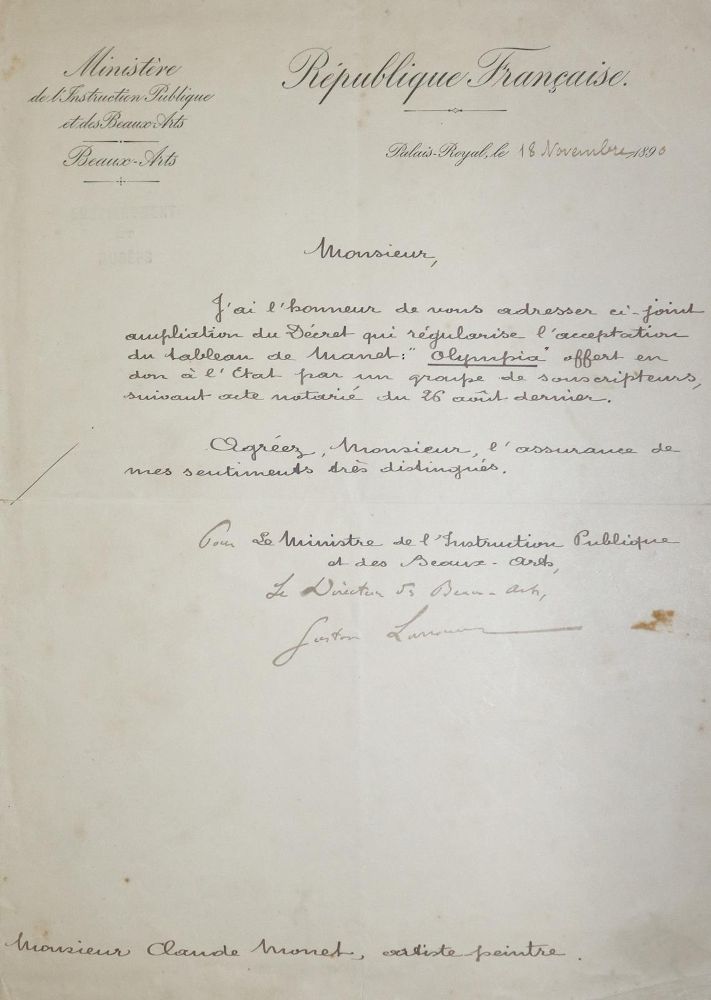 Ministère
de l'Instruction Publique
et des Beaux-Arts
Beaux-Arts
République Française.
Palais-Royal, le 18 Novembre 1890
Monsieur,
J'ai l'honneur de vous adresser ci-joint
ampliation du Décret qui régularise l'acceptation
du tableau de Manet: "Olympia" offert en
don à l'Etat par un groupe de souscripteurs,
suivant acte notarié du 26 août dernier.
Agréez, Monsieur, l'assurance de
mes sentiments très distingués.
Pour Le Ministre de l'Instruction Publique
et des Beaux-Arts,
Le Directeur des Beaux-Arts,
Gustave Larroumet
Monsieur Claude Monet, artiste peintre.